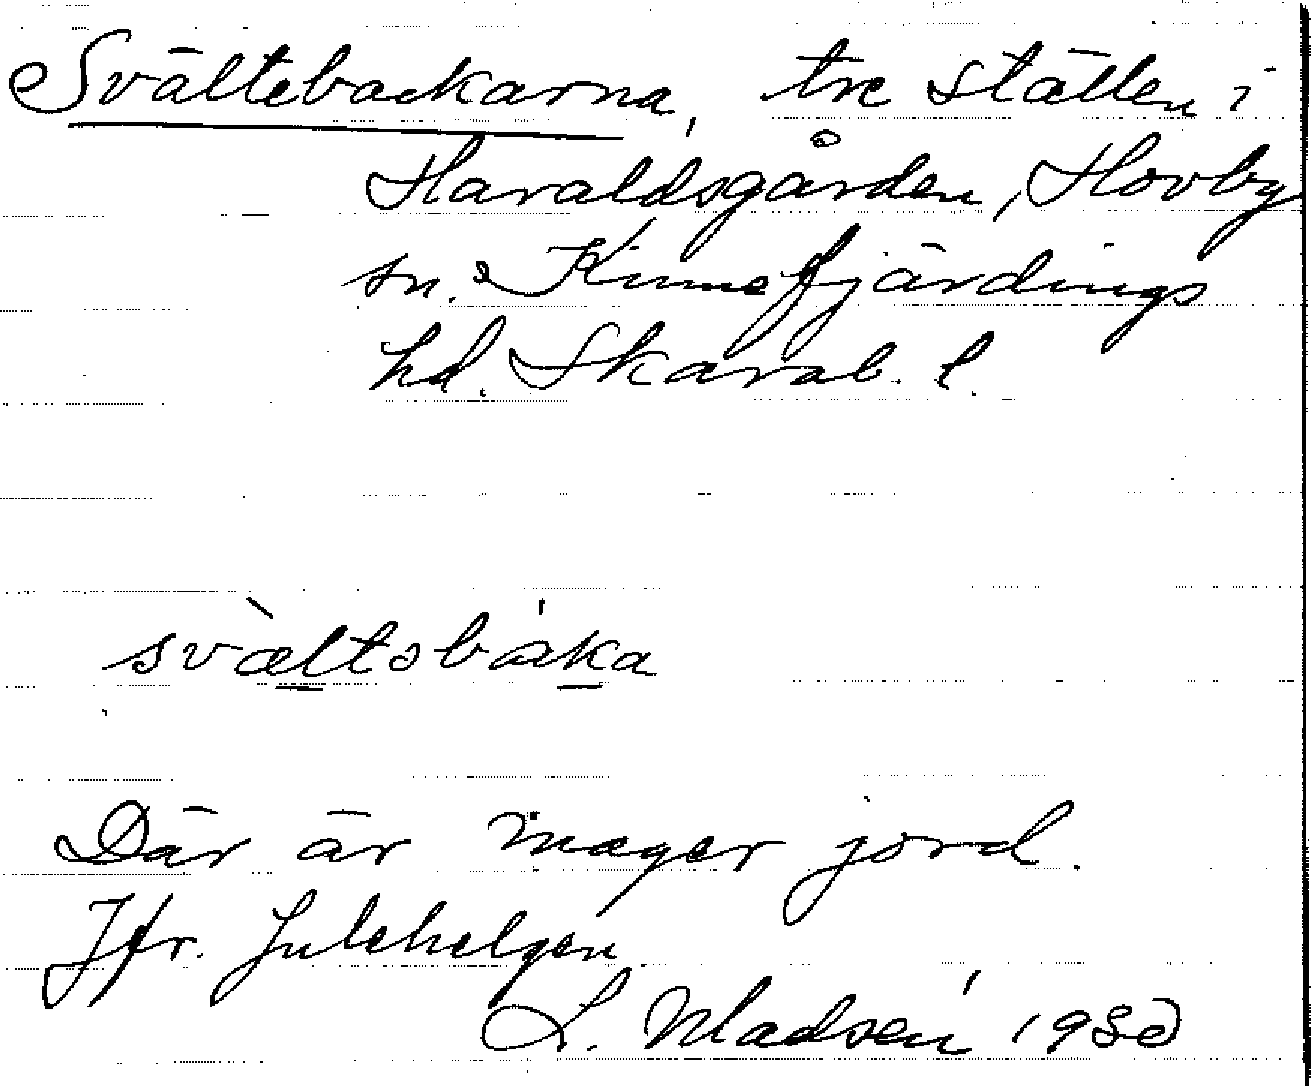 Svältebackarna, tre ställen i
Haraldsgården, Hovby
sn. Kinnefjärdings
hd. Skarab. l.
svæ̀ltsbáka
Där är mager jord.
Jfr. Julehelgen
L. Madsén 1930